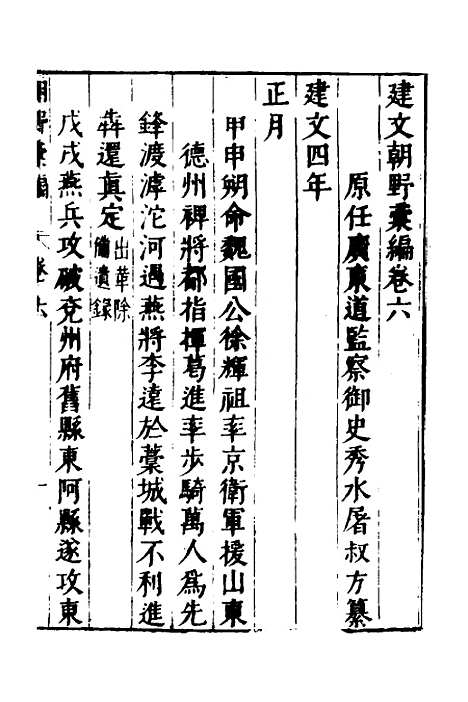 建文朝野彙編卷六
原任廣東道監察御史秀水屠叔方纂
建文四年
正月
甲申朔命魏國公徐輝祖率京衛軍援山東
德州裨將都指揮葛進率步騎萬人爲先
鋒渡滹沱河遇燕將李遠於藁城戰不利進
犇還真定出革除
備遺錄
戊戌燕兵攻破兗州府舊縣東阿縣遂攻東
朝野彙編 卷六 一